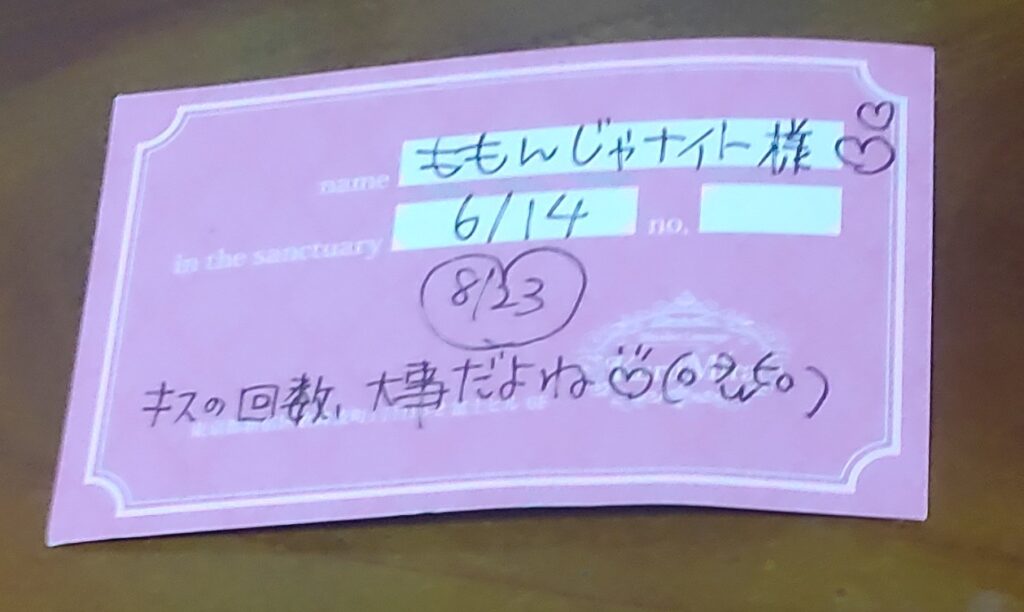 name ももんじゃナイト様
in the sanctuary 6/14 no.
8/23
キスの回数、大事だよね